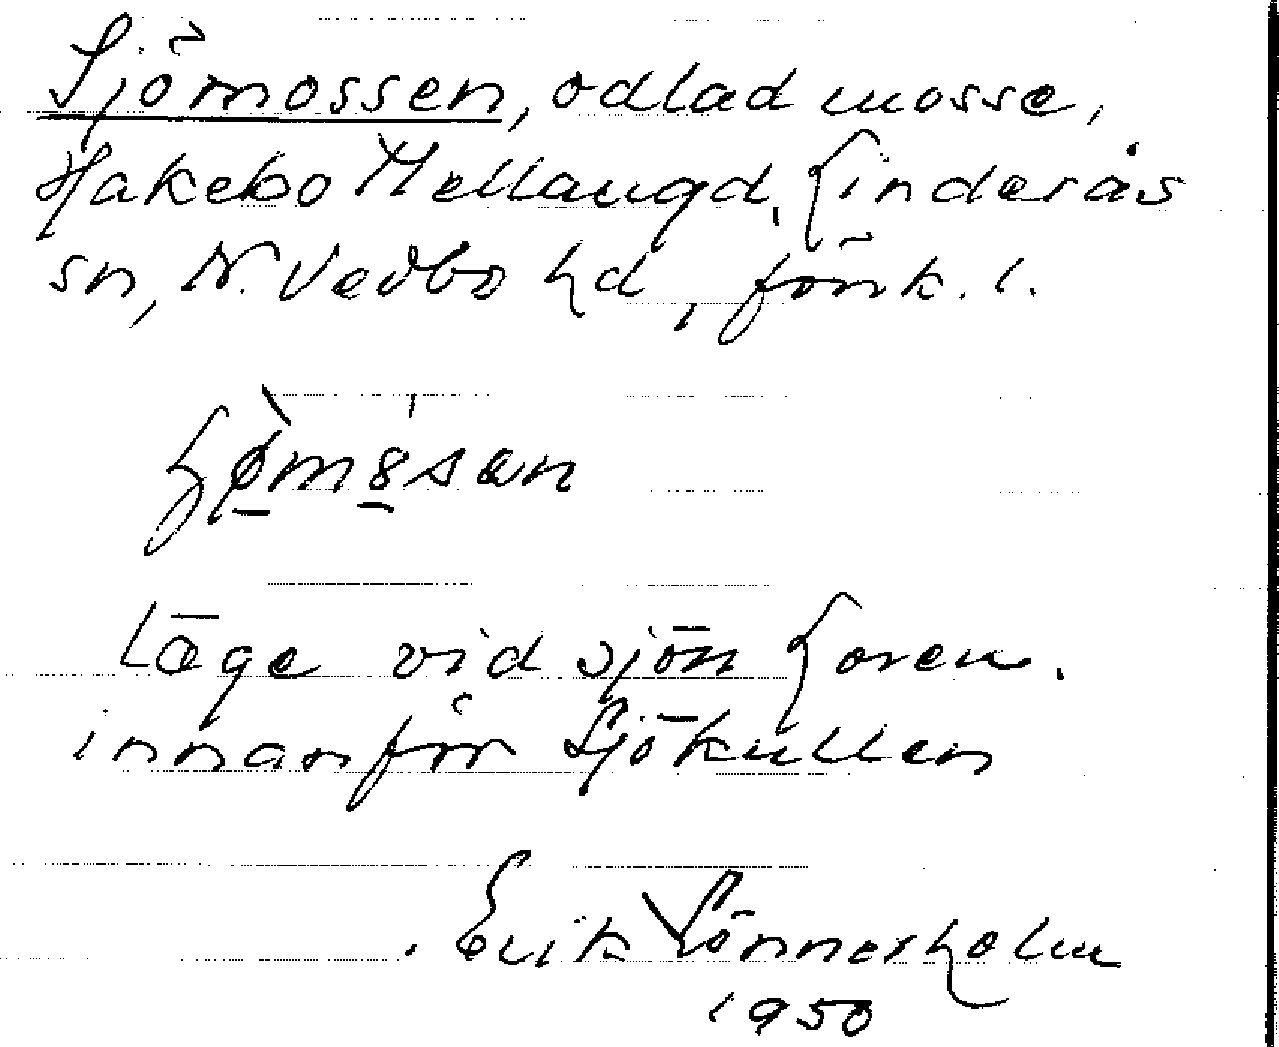 Sjömossen, odlad mosse,
Hakebo Mellangd, Linderås
sn, N. Vedbo hd, Jönk. l.
Läge vid sjön Loren.
innanför Sjökullen
Erik Lönnerholm
1950